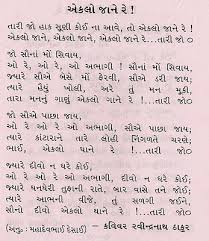 એકલો જાને રે !
તારી જો હાક સુણી કોઈ ના આવે, તો એકલો જાને રે !
એકલો જાને, એકલો જાને, એકલો જાને રે... તારી જો૦
જો સૌનાં મોં સિવાય,
ઓ રે, ઓ રે, ઓ અભાગી ! સૌનાં મોં સિવાય,
જ્યારે સૌએ બેસે મોં ફેરવી, સૌએ ડરી જાય;
ત્યારે હૈયું ખોલી, અરે તું મોં મૂકી,
તારા મનનું ગાણું એકલો ગાને રે !...તારી જો૦
જો સૌએ પાછા જાય,
ઓ રે, ઓ રે, ઓ અભાગી ! સૌએ પાછા જાય;
ત્યારે કાંટારાને તારે લોહી નિગળતે ચરણે,
ભાઈ, એકલો ધાને રે !...તારી જો૦
જ્યારે દીવો ન ધરે કોઈ,
ઓ રે, ઓ રે, ઓ અભાગી ! દીવો ન ધરે કોઈ,
જ્યારે ઘનઘેરી તુફાની રાતે, બાર વાસે તને જોઈ;
ત્યારે આભની વીજે, તું સળગી જઈને,
સૌનો દીવો એકલો થાને રે !...તારી જો૦
(અનુ. : મહાદેવભાઈ દેસાઈ) – કવિવર રવીન્દ્રનાથ ઠાકુર